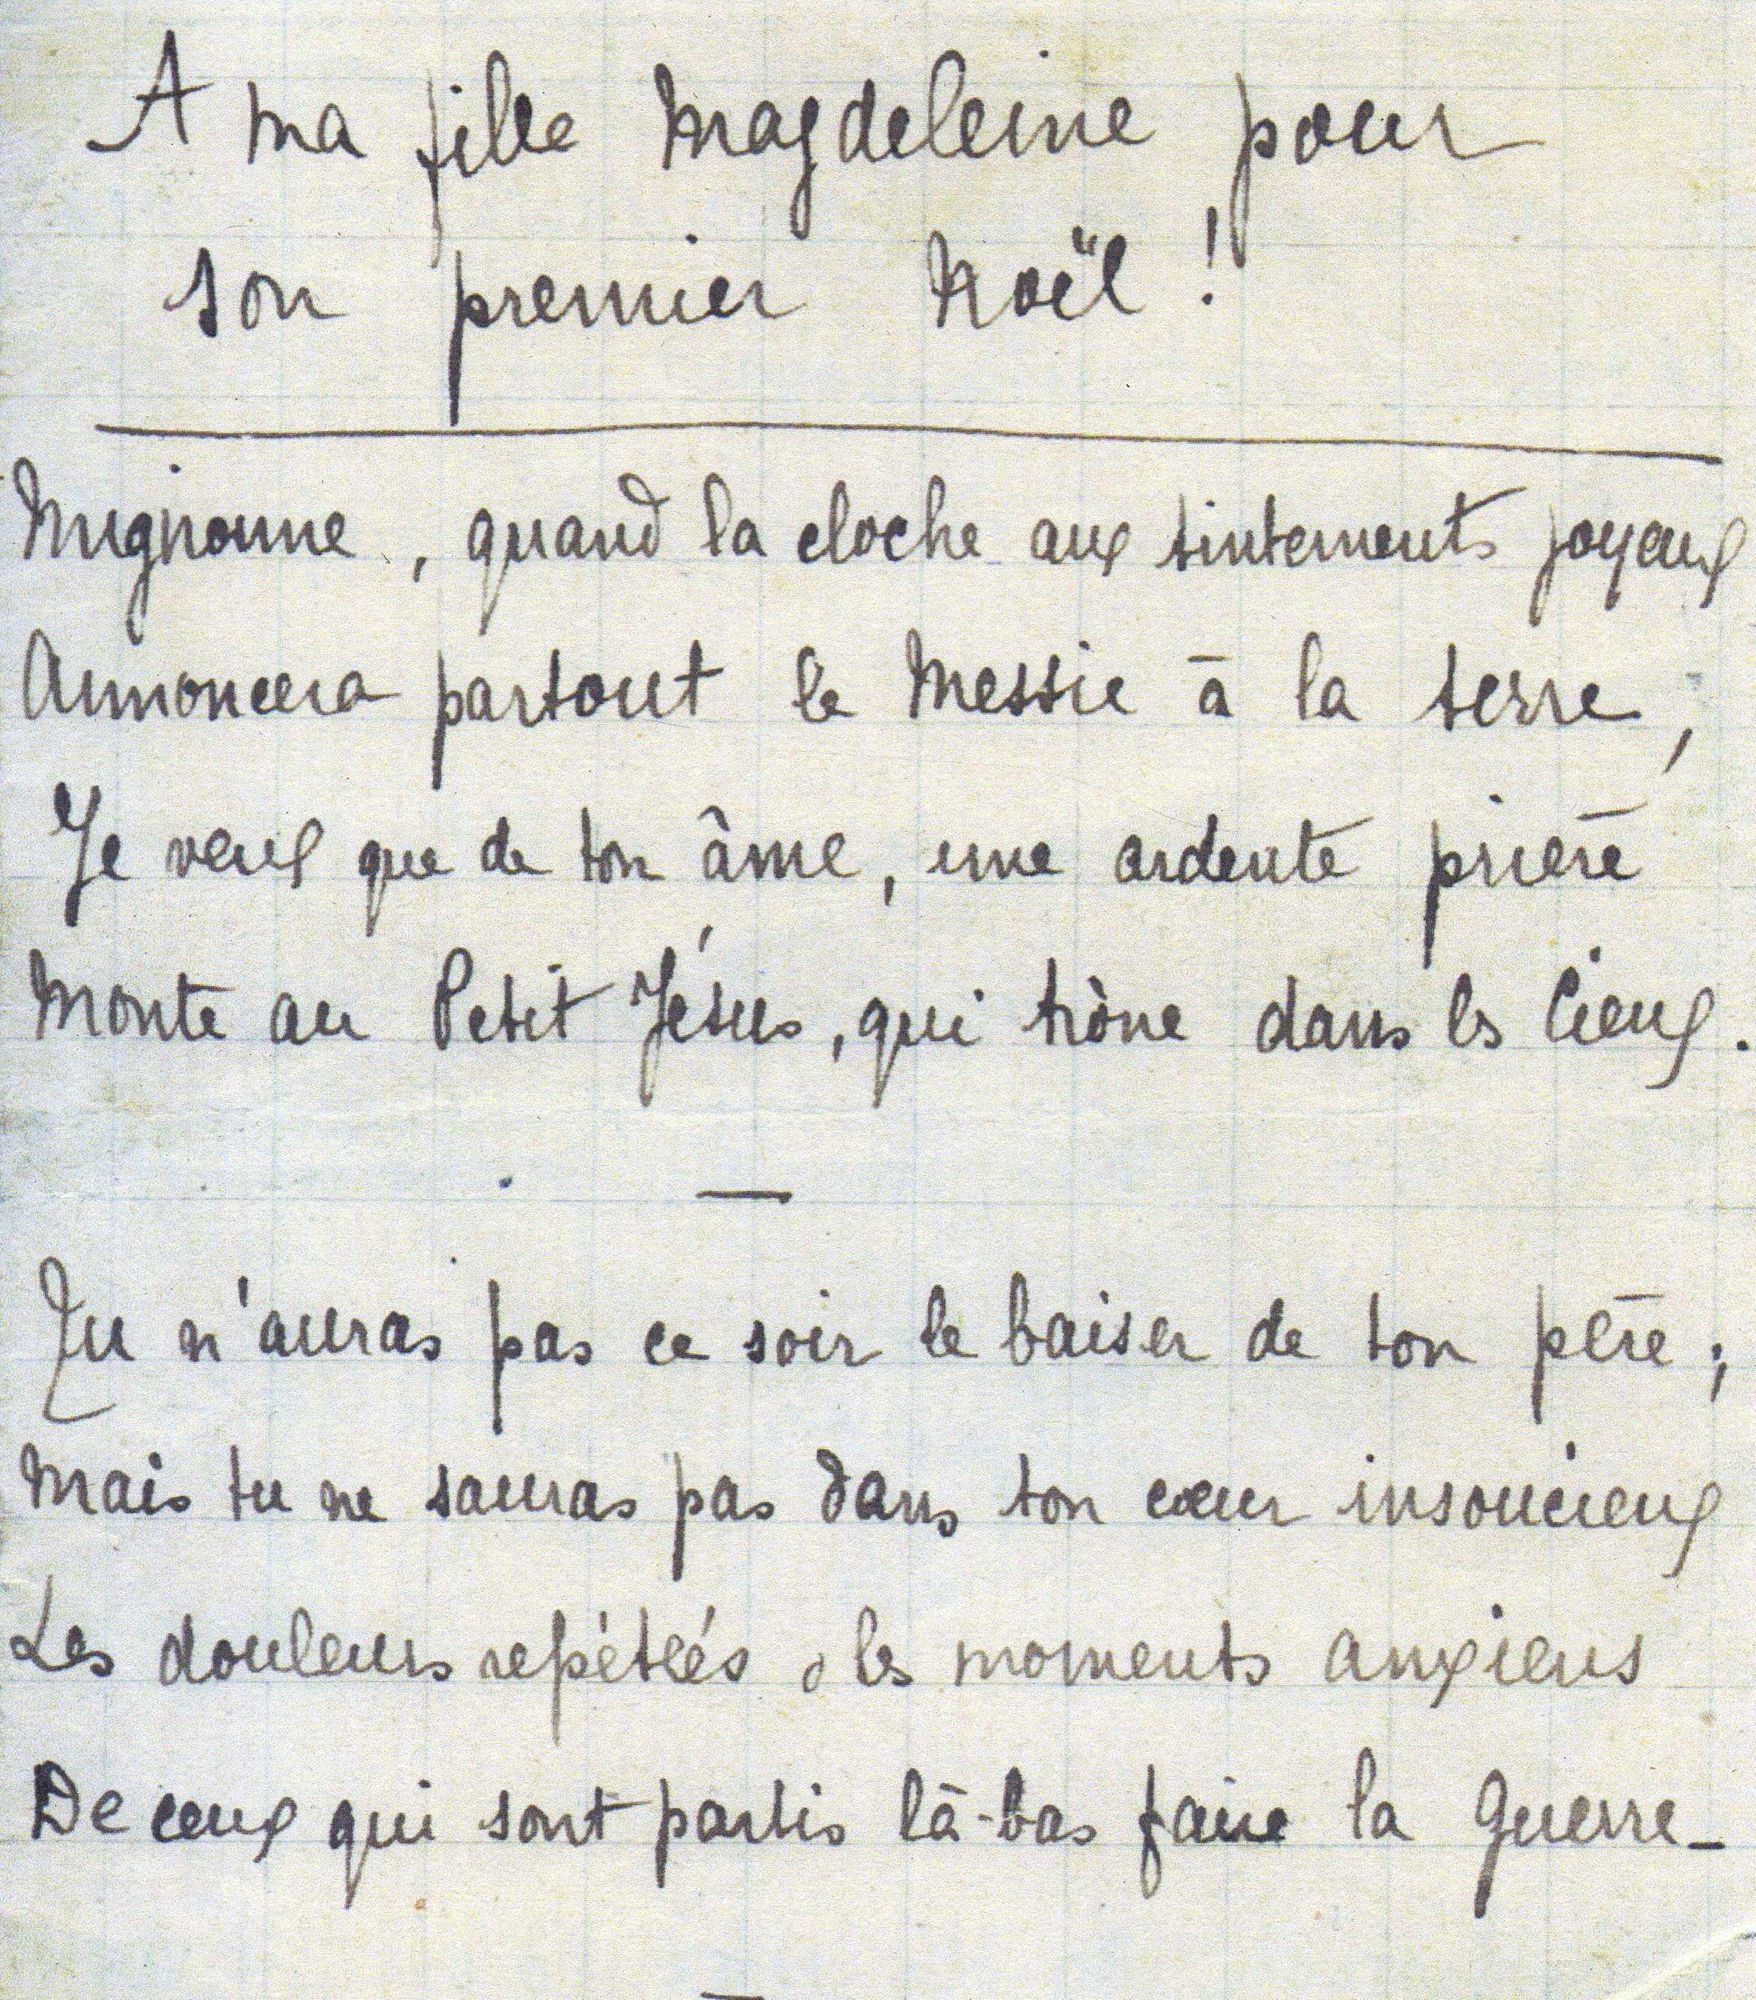 A ma fille Magdeleine pour
son premier Noël !
Mignonne, quand la cloche aux tintements joyeux
Annoncera partout le Messie à la terre,
Je veux que de ton âme, une ardente prière
Monte au Petit Jésus, qui trône dans les Cieux.
Tu n'auras pas ce soir le baiser de ton père ;
Mais tu ne sauras pas dans ton cœur insoucieux
Les douleurs repétées, les moments anxieus
De ceux qui sont partis là-bas faire la Guerre_